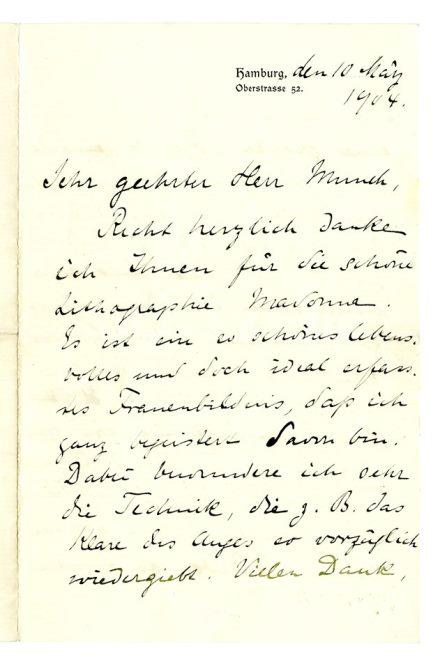 Hamburg, den 10 März
Oberstrasse 52.
1904.
Sehr geehrter Herr Munch,
Recht herzlich danke
ich Ihnen für die schöne
Lithographie Madonna.
Es ist ein so schönes lebens-
volles und doch ideal erfass-
tes Frauenbildnis, daß ich
ganz begeistert davon bin.
Dabei bewundere ich sehr
die Technik, die z. B. das
Klare des Auges so vorzüglich
wiedergiebt. Vielen Dank,